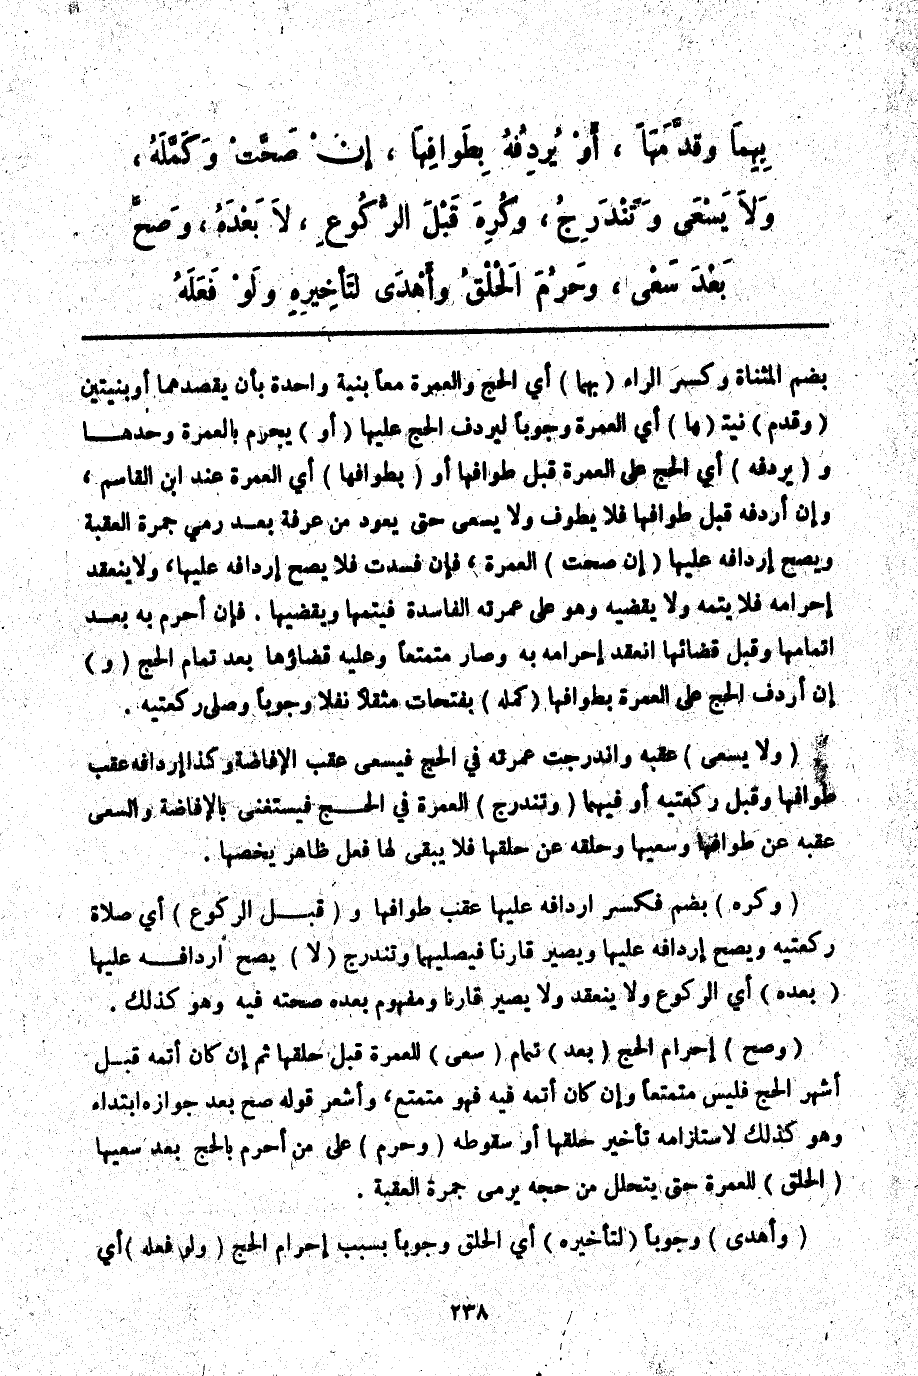 بِهِمَا وقدَّمَهَا ، أَوْ يُردِفُهُ بِطَوافِهَا ، إِنْ صَحَّتْ وَكَمَّلَهُ ،
وَلَا يَسْعَى وَتَنْدَرِجُ ، وكُرِهَ قَبْلَ الرُّكُوعِ ، لَا بَعْدَهُ ، وَصَحَّ
بَعْدَ سَعْى ، وحَرُمَ الَحْلْقُ وأَهْدَى لتَأخِيرِهِ ولَوْ فَعَلَهُ
بضم المثناة وكسر الراء ( بهما ) أي الحج والعمرة معاً بنية واحدة بأن يقصدهما أو بنيتين
( وقدم ) نيتـ ( ها ) أي العمرة وجوباً ليردف الحج عليها ( أو ) يحرم بالعمرة وحدهـــا
و ( يردفه ) أي الحج على العمرة قبل طوافها أو ( بطوافها ) أي العمرة عند ابن القاسم ،
وإن أردفه قبل طوافها فلا يطوف ولا يسعى حتى يعود من عرفة بعــد رمي جمرة العقبة
ويصح إردافه عليها ( إن صحت ) العمرة ، فإن فسدت فلا يصح إردافه عليها، ولا ينعقد
إحرامه فلا يتمه ولا يقضيه وهو على عمرته الفاسدة فيتمها ويقضيها . فإن أحرم به بعــد
اتمامها وقبل قضائها انعقد إحرامه به وصار متمتعاً وعليه قضاؤها بعد تمام الحج ( و )
إن أردف الحج على العمرة بطوافها ( كمله ) بفتحات مثقلاً نفلا وجوباً وصلى ركعتيه .
( ولا يسعى ) عقبه واندرجت عمرته في الحج فيسعى عقب الإفاضة وكذا إردافه عقب
طوافها وقبل ركعتيه أو فيهما ( وتندرج ) العمرة في الحـــج فيستغنى بالإفاضة والسعى
عقبه عن طوافها وسعيها وحلقه عن حلقها فلا يبقى لها فعل ظاهر يخصها .
( وكره ) بضم فكسر اردافه عليها عقب طوافها و ( قبـــل الركوع ) أي صلاة
ركعتيه ويصح إردافه عليها ويصير قارناً فيصليهما وتندرج ( لا ) يصح أردافـــه عليها
( بعده ) أي الركوع ولا ينعقد ولا يصير قارنا ومفهوم بعده صحته فيه وهو كذلك .
( وصح ) إحرام الحج ( بعد ) تمام ( سعى ) للعمرة قبل حلقها ثم إن كان أتمه قبــل
أشهر الحج فليس متمتعاً وإن كان أتمه فيه فهو متمتع، وأشعر قوله صح بعد جوازه ابتداء
وهو كذلك لاستلزامه تأخير حلقها أو سقوطه ( وحرم ) على من أحرم بالحج بعد سعيها
( الحلق ) للعمرة حتى يتحلل من حجه يرمى جمرة العقبة .
( وأهدى ) وجوباً ( لتأخيره ) أي الحلق وجوباً بسبب إحرام الحج ( ولو فعله ) أي
٢٣٨